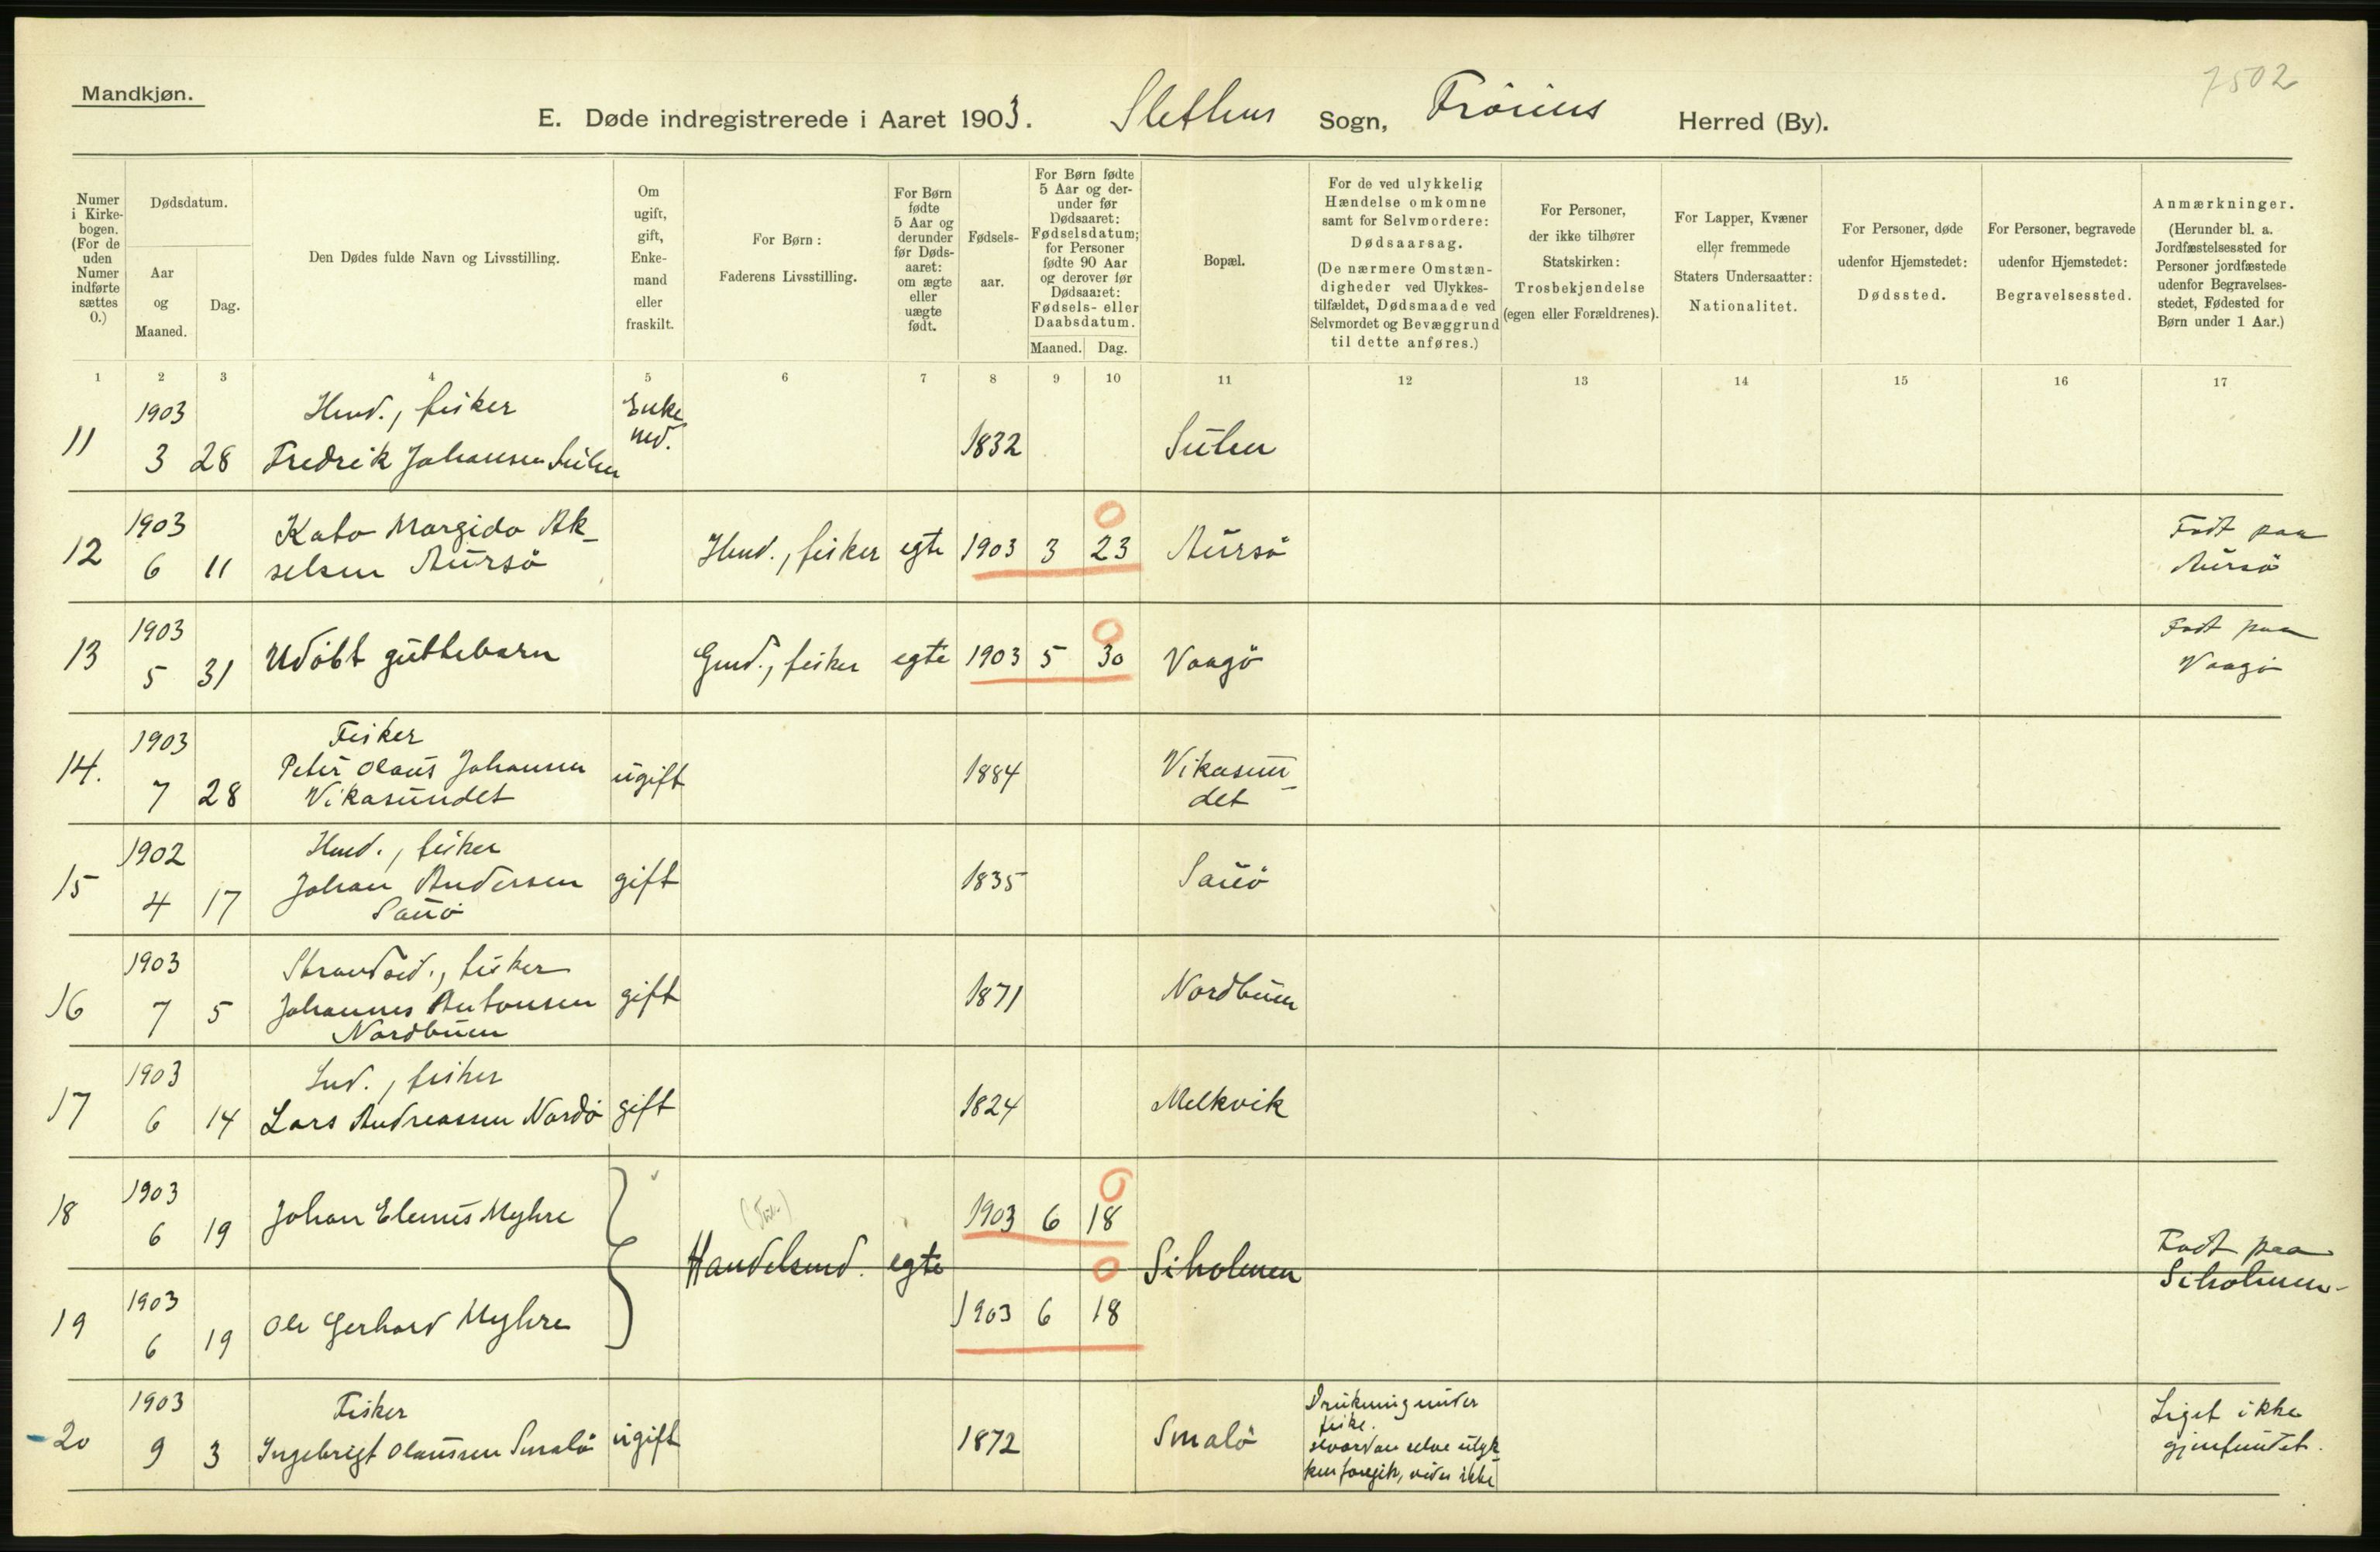 7502
Mandkjøn.
E. Døde indregistrerede i Aaret 1903. Slethens Sogn, Fröiens Herred (By).
Numer i Kirkebogen. (For de uden Numer indførte sættes 0.)
Dødsdatum.
Aar og Maaned.
Dag.
Den Dødes fulde Navn og Livsstilling.
Om ugift, gift, Enkemand eller fraskilt.
For Børn:
Faderens Livsstilling.
For Børn fødte 5 Aar og derunder før Dødsaaret: om ægte eller uægte født.
Fødselsaar.
For Børn fødte 5 Aar og derunder før Dødsaaret: Fødselsdatum; for Personer fødte 90 Aar og derover før Dødsaaret: Fødsels- eller Daabsdatum.
Maaned. Dag.
Bopæl.
For de ved ulykkelig Hændelse omkomne samt for Selvmordere: Dødsaarsag.
(De nærmere Omstændigheder ved Ulykkestilfældet, Dødsmaade ved Selvmordet og Bevæggrund til dette anføres.)
For Personer, der ikke tilhører Statskirken: Trosbekjendelse (egen eller Forældrenes).
For Lapper, Kvæner eller fremmede Staters Undersaatter: Nationalitet.
For Personer, døde udenfor Hjemstedet: Dødssted.
For Personer, begravede udenfor Hjemstedet: Begravelsessted.
Anmærkninger.
(Herunder bl. a. Jordfæstelsessted for Personer jordfæstede udenfor Begravelsesstedet, Fødested for Børn under 1 Aar.)
1 2 3 4 5 6 7 8 9 10 11 12 13 14 15 16 17
1903 Hmd., fisker Enke
11 3 28 Fredrik Johansen Sulen md. 1832 Sulen
1903 Kato Margido Ak- 0 Födt paa
12 6 11 selsen Aursö Hmd., fisker egte 1903 3 23 Aursö Aursö
1903 0 Födt paa
13 5 31 Udöbt guttebarn Gmd., fisker egte 1903 5 30 Vaagö Vaagö
1903 Fisker
14. 7 28 Peter Olaus Johansen ugift 1884 Vikasun-
Vikasundet det
1902 Hmd., fisker
15 4 17 Johan Andersen gift 1835 Sauö
Sauö
1903 Strandsid., fisker
16 7 5 Johannes Antonsen gift 1871 Nordbuen
Nordbuen
1903 Ind., fisker
17 6 14 Lars Andreassen Nordö gift 1824 Melkvik
1903 0
18 6 19 Johan Elenus Myhre 1903 6 18
Handelsmd. egte 0 Siholmen Födt paa Siholmen
1903
19 6 19 Ole Gerhard Myhre 1903 6 18
1903 Fisker Drukning under fiske.
20 9 3 Ingebrigt Olaussen Smalö ugift 1872 Smalö hvordan selve ulyk-
ken foregik, vides ikke
Liget ikke
gjenfundet.